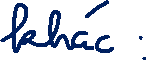 khác :